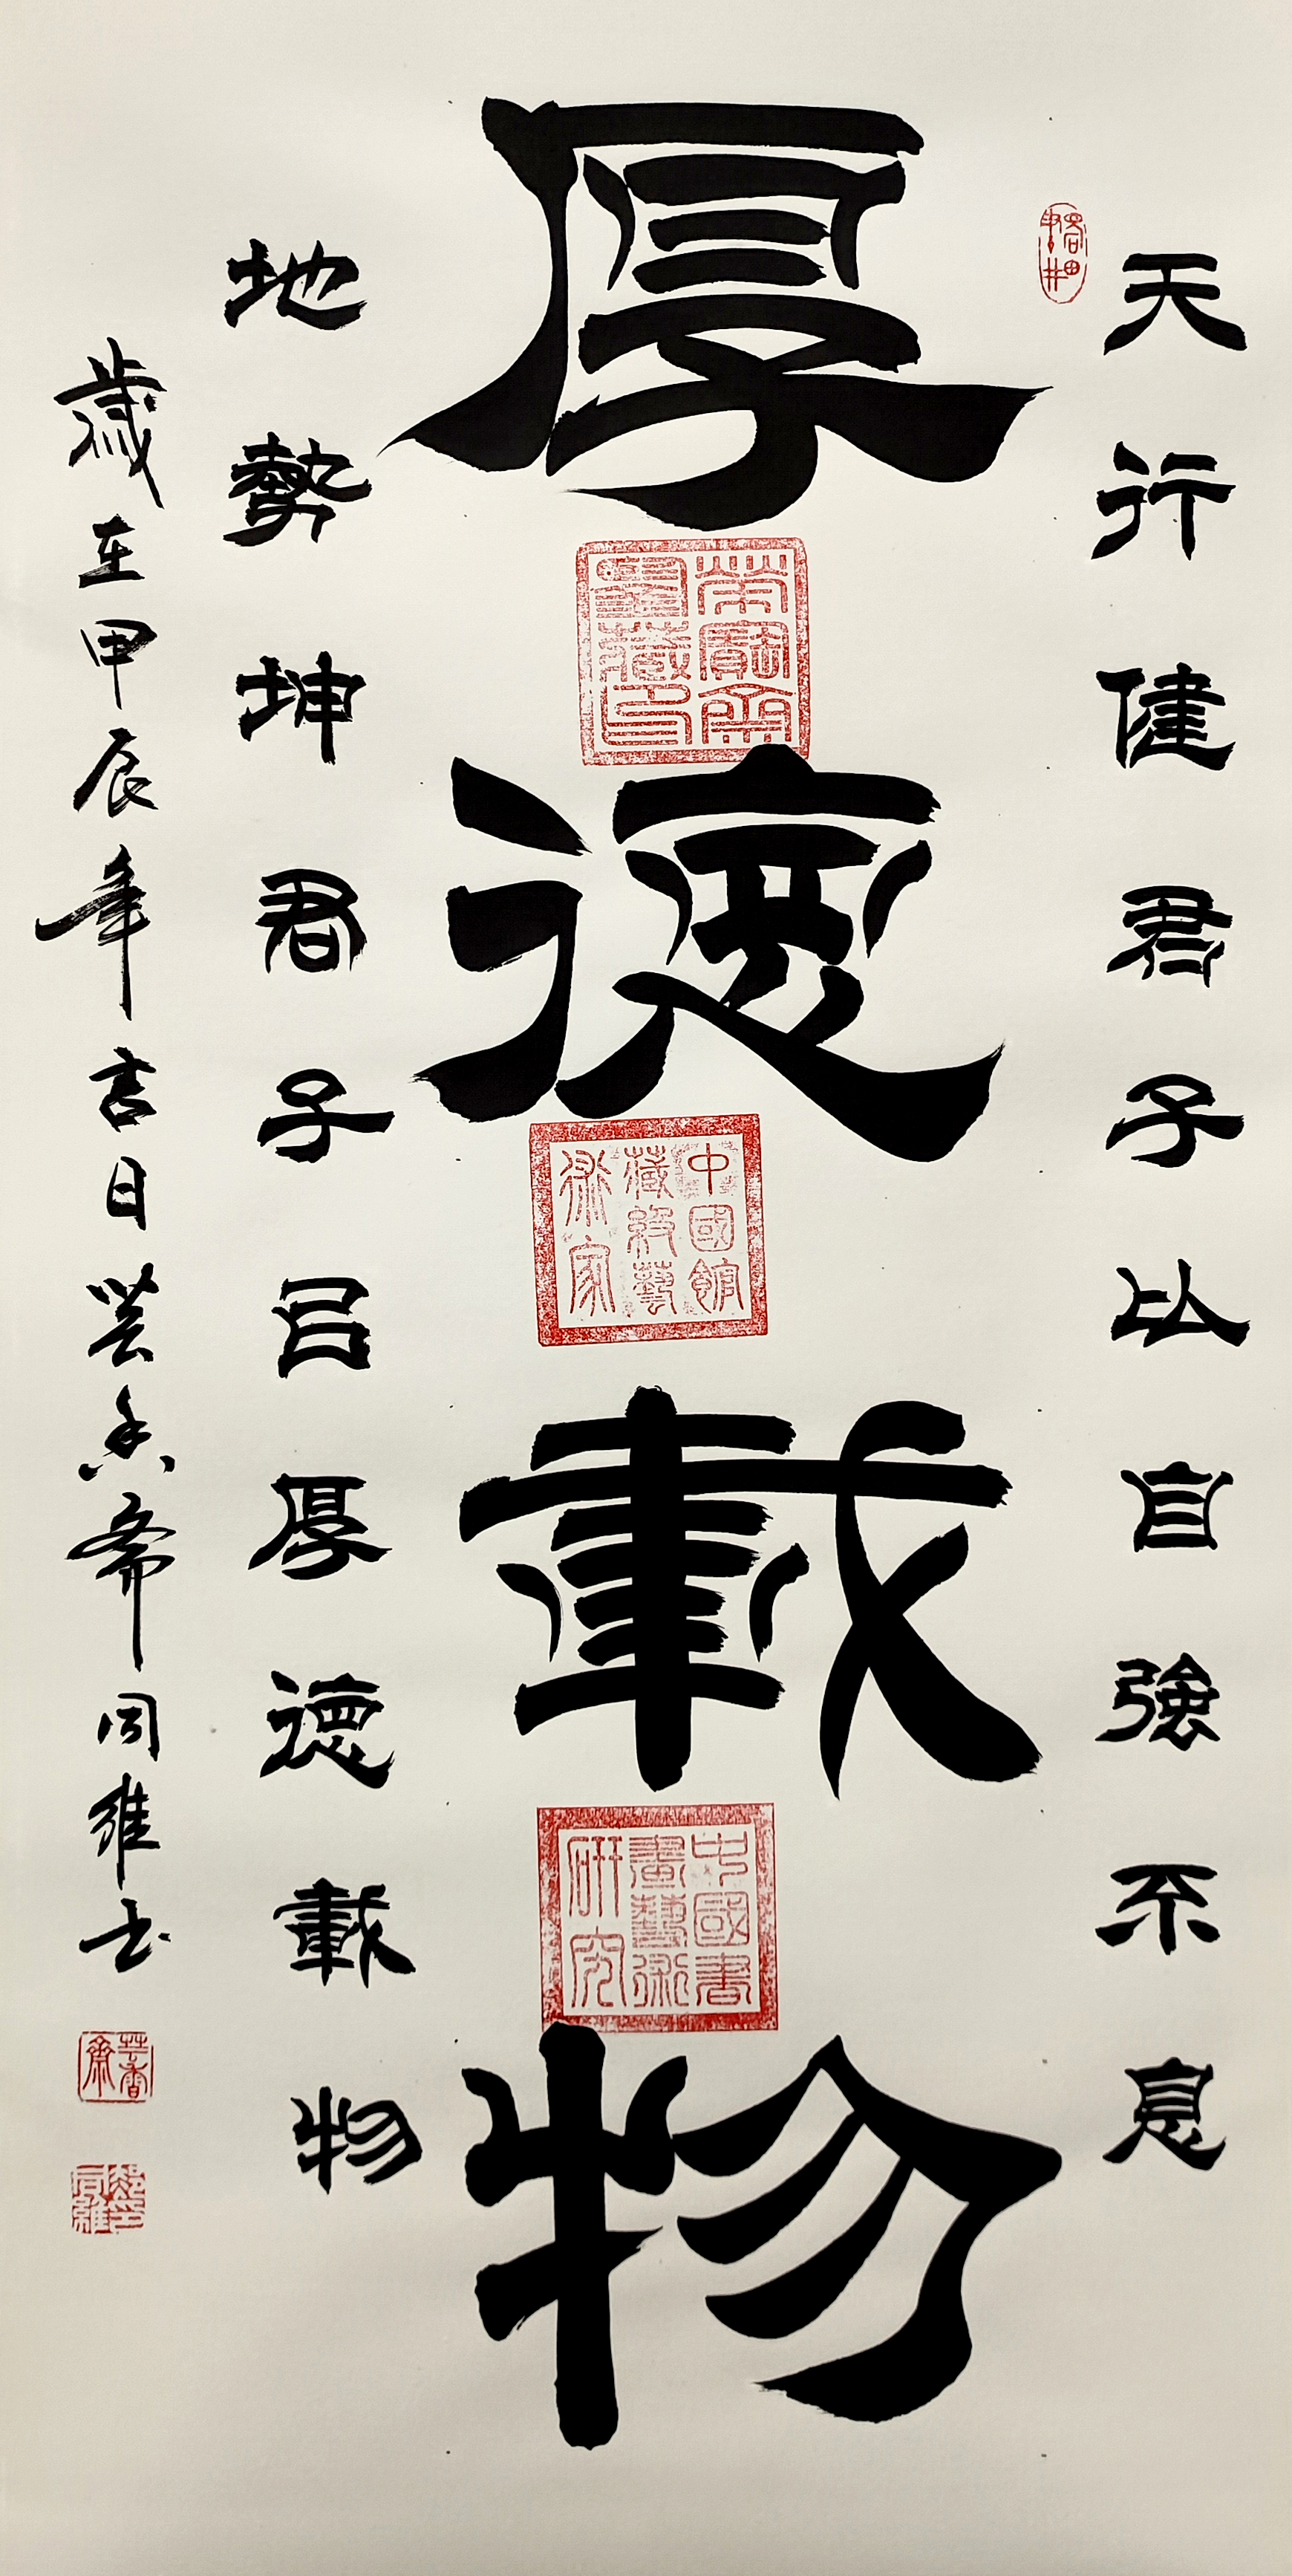 天行健君子以自強不息
厚德載物
榮寶齋
藏印
中國館藏級藝術家
中國書畫藝術研究
地勢坤君子㠯厚德載物
歲在甲辰年吉日芸香齋同維书
芸香齋